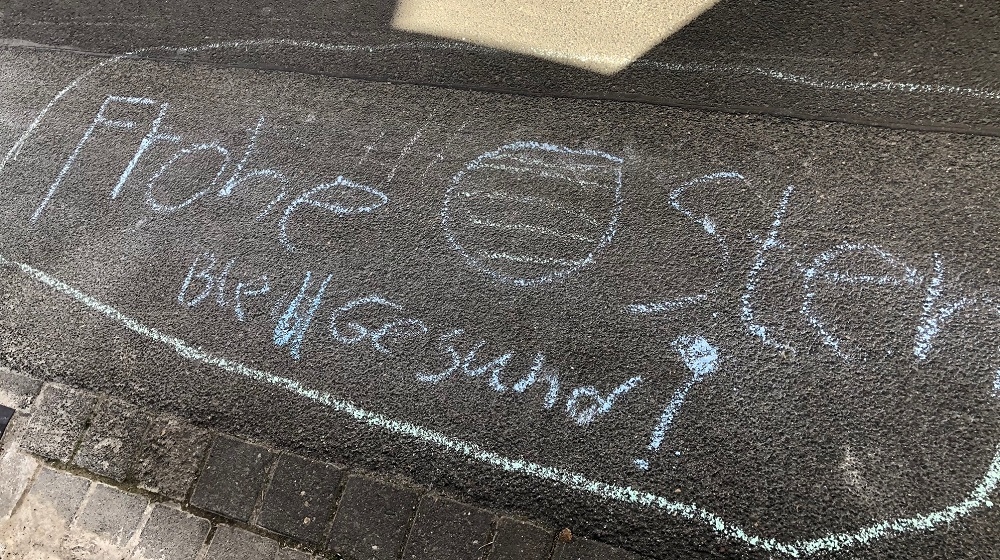 Frohe Oster
Bleib Gesund!